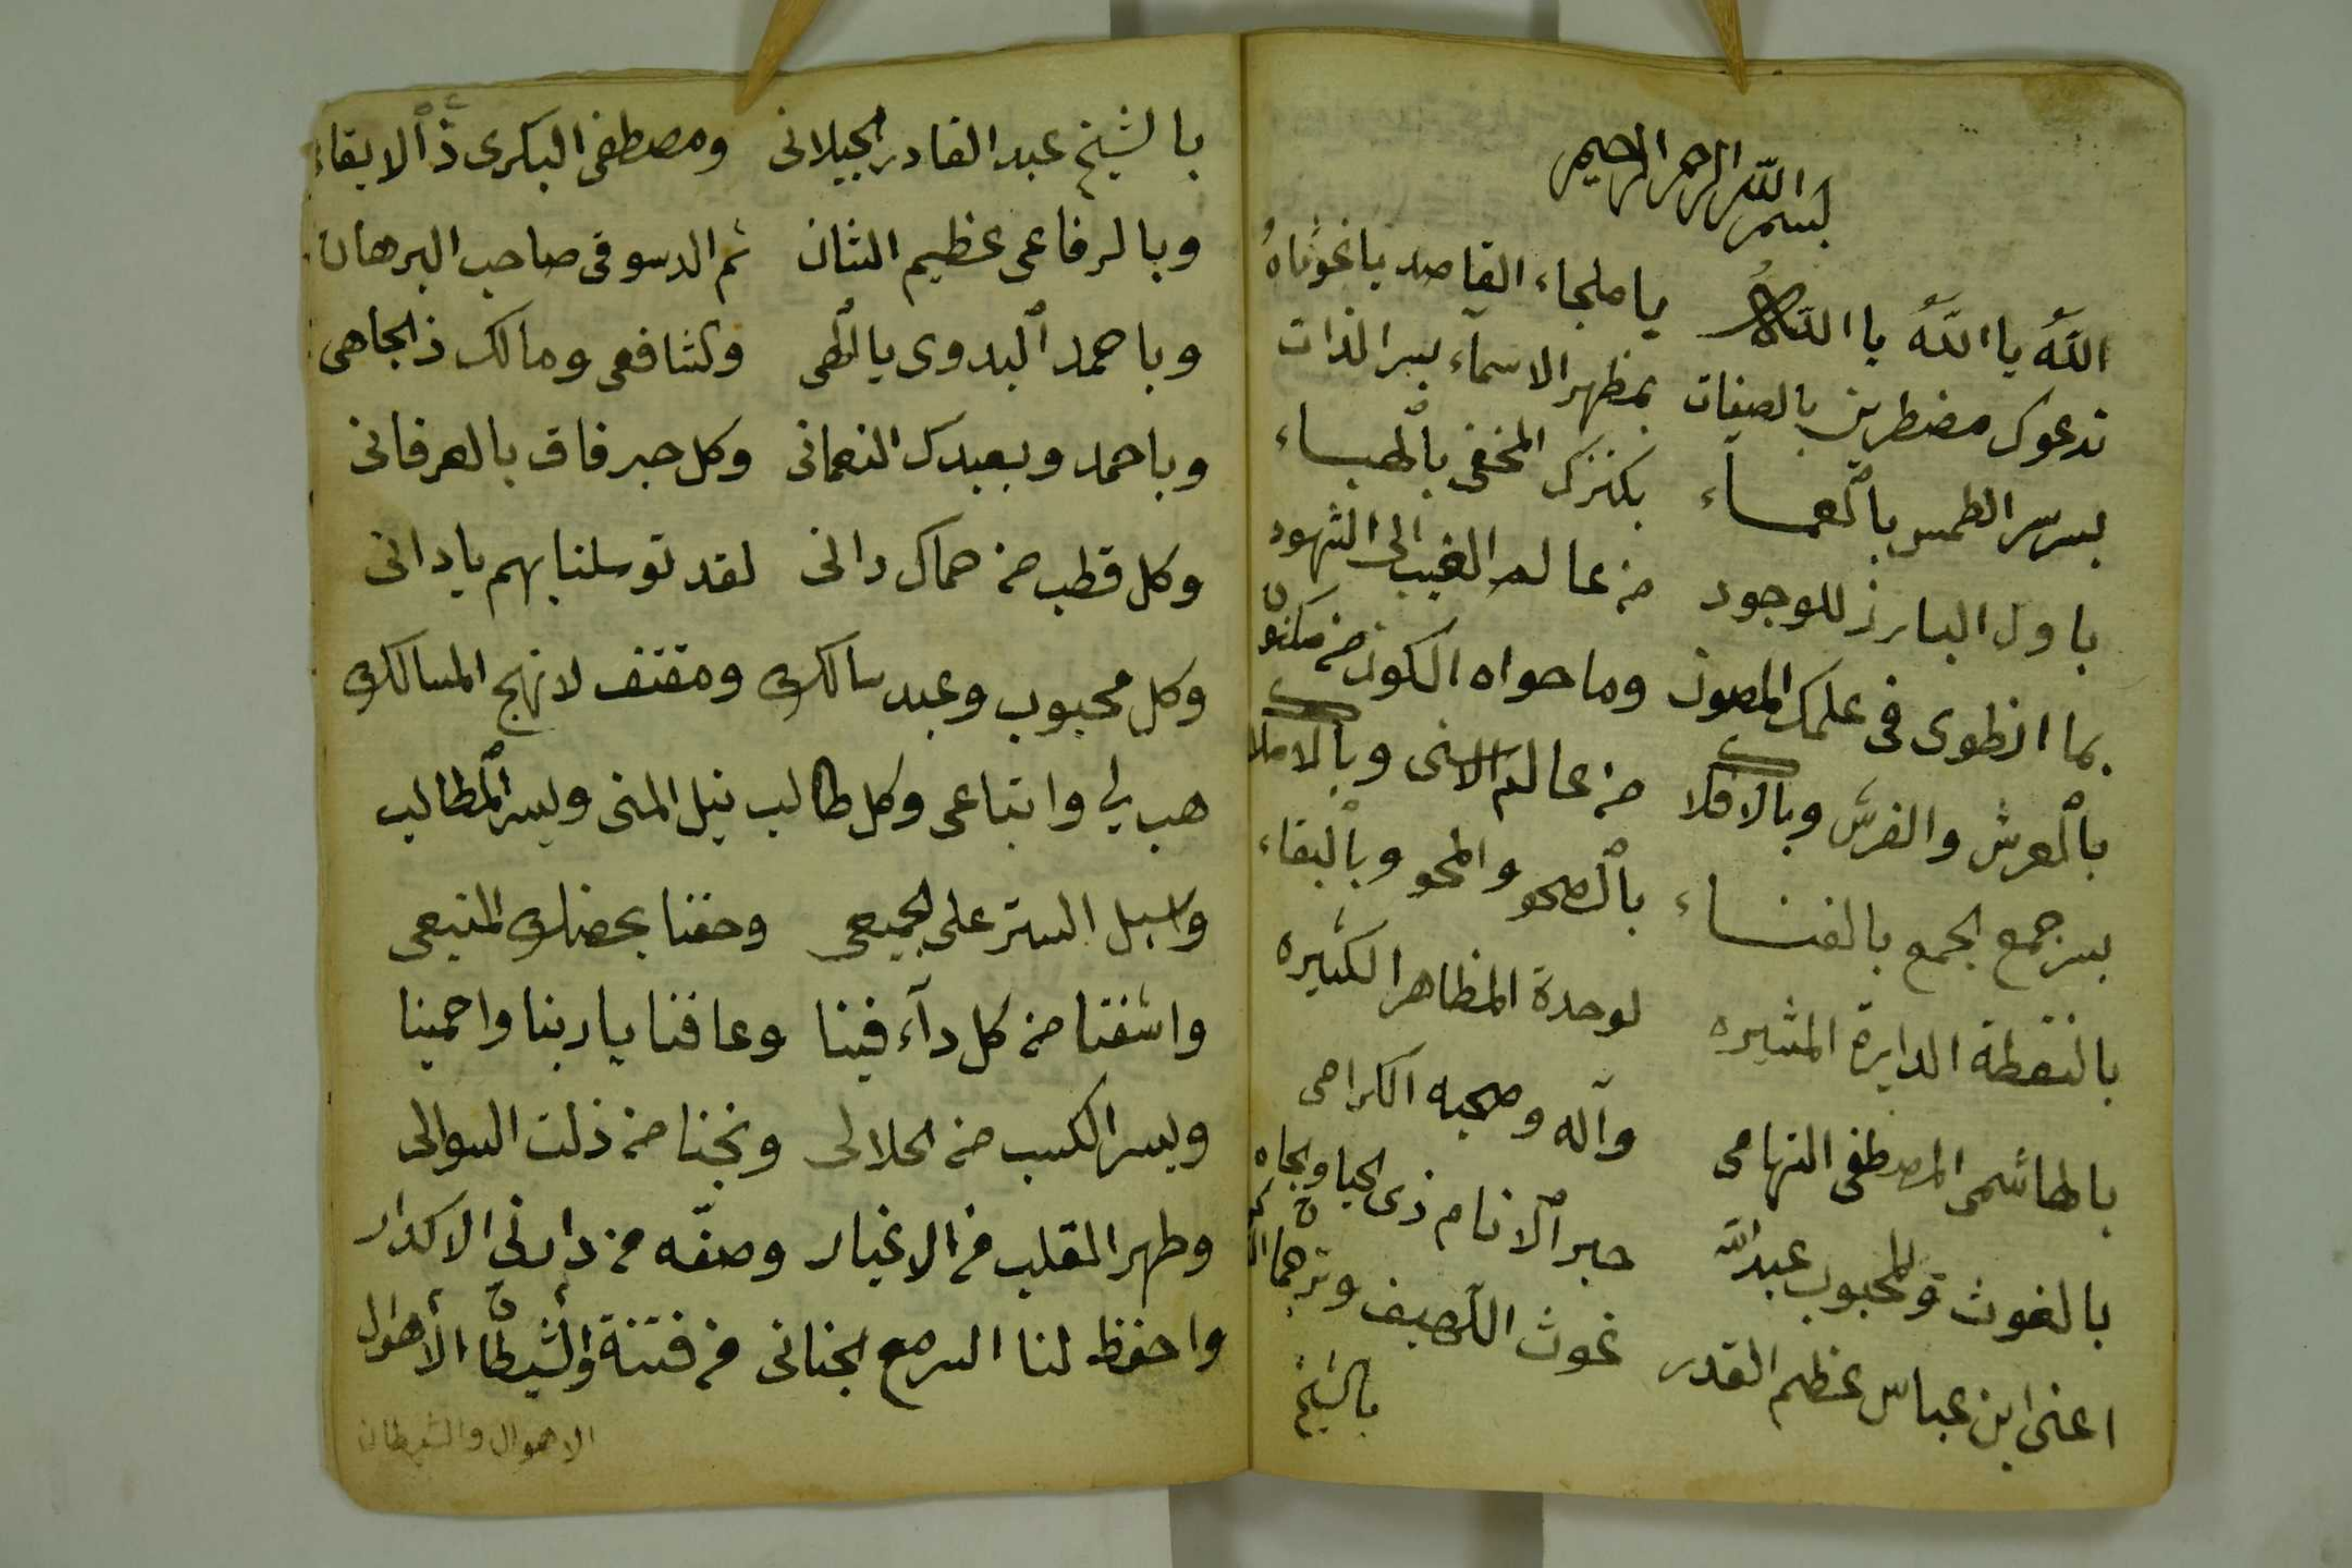 بسم الله الرحمن الرحيم
الله يا الله يا الله يا ملجاء القاصد يا غوثاهُ
ندعوك مضطرين بالصفات بمظهر الاسمآء بسر الذات
بسر سر الطمس بالعمــاء بكنزك المخفى بالهبــاء
باول البارز للوجود من عالم الغيب الى الشهود
بما انطوى فى علمك المصون وما حواه الكون من مكنون
بالعرش والفرش وبالافلاك من عالم الاسنى وبالاملاك
بسر جمع الجمع بالفنــاء بالصحو والمحو وبالبقاء
بالنقطة الدايرة المشيره لوحدة المظاهر الكثيره
بالهاشمى المصطفى التهامى وآله وصحبه الكرامى
بالغوث والمحبوب عبد الله حبر الانام ذى الحيا والجاه
اعنى ابن عباس عظيم القدر غوث اللهيف وترجمان
بالشيخ
بالشيخ عبد القادر الجيلانى ومصطفى البكرى ذا الايقاء
وبالرفاعى عظيم الشان ثم الدسوقى صاحب البرهان
وباحمد البدوى يا الهى والشافعى ومالك ذ الجاهى
وباحمد وبعبدك النعمانى وكل حبر فاق بالعرفانى
وكل قطب من حماك دانى لقد توسلنا بهم يا دانى
وكل محبوب وعبد سالك ومقتف لانهج المسالك
هب لي واتباعى وكل طالب نيل المنى ويسر المطالب
واسبل الستر على الجميعى وحفنا بحصنك المنيعى
واشفنا من كل دآء فينا وعافنا يا ربنا واحمينا
ويسر الكسب من الحلالى ونجنا من ذلت السوالى
وطهر القلب من الاغيار وصفّه من دارنى الاكدار
واحفظ لنا السر مع الجنانى من فتنة والشيطان الأهول
الاهوال والشيطان